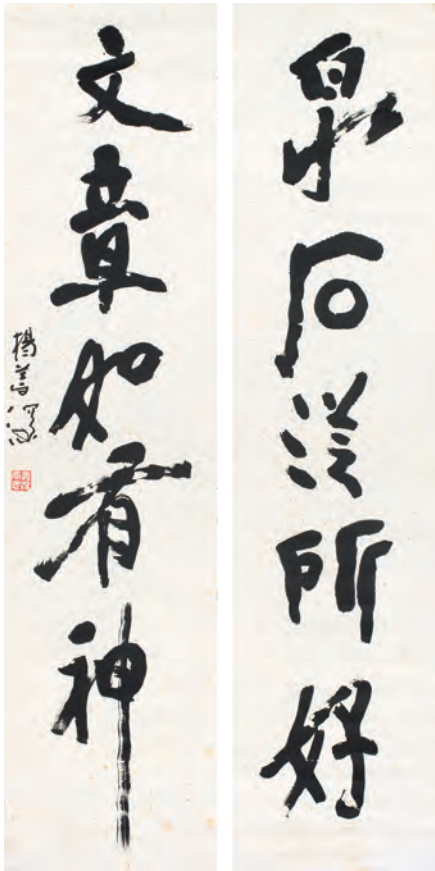 泉石從所好
文章如有神
楊善深